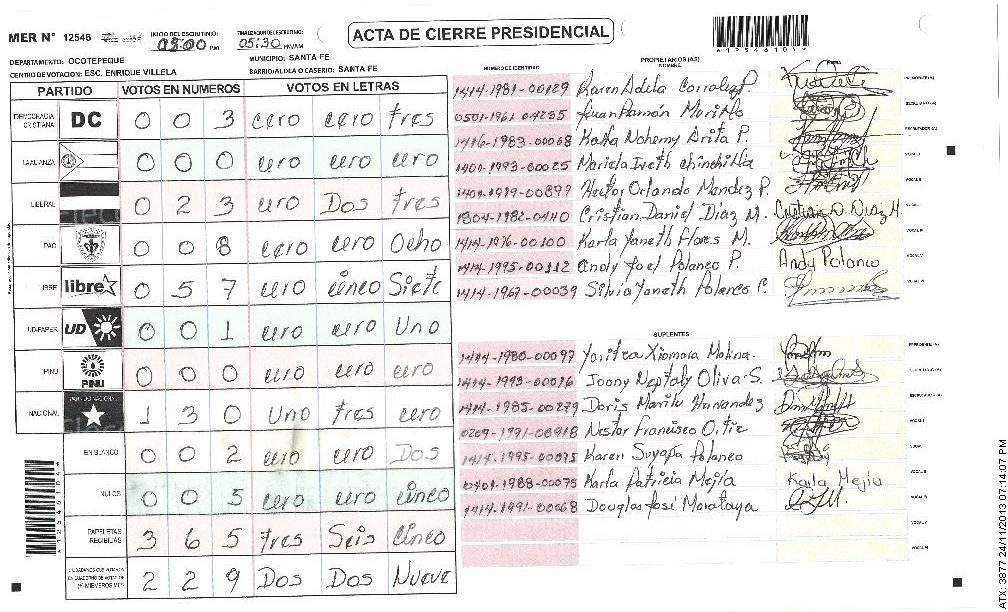 MER N° 12546 INICIO DEL ESCRUTINIO: 03:00 PM FINALIZACION DEL ESCRUTINIO: 05:30 PM/AM
ACTA DE CIERRE PRESIDENCIAL
DEPARTAMENTO: OCOTEPEQUE MUNICIPIO: SANTA FE
CENTRO DE VOTACION: ESC. ENRIQUE VILLELA BARRIO/ALDEA O CASERIO: SANTA FE
PARTIDO VOTOS EN NUMEROS VOTOS EN LETRAS
DEMOCRACIA CRISTIANA DC 0 0 3 cero cero tres
LA ALIANZA 0 0 0 cero cero cero
LIBERAL 0 2 3 cero Dos tres
PAC 0 0 8 cero cero Ocho
LIBRE libre 0 5 7 cero cinco Siete
UD-FAPER UD 0 0 1 cero cero Uno
PINU PINU 0 0 0 cero cero cero
NACIONAL PARTIDO NACIONAL 1 3 0 Uno tres cero
EN BLANCO 0 0 2 cero cero Dos
NULOS 0 0 5 cero cero cinco
PAPELETAS RECIBIDAS 3 6 5 tres Seis Cinco
CIUDADANOS QUE VOTARON EN CUADERNO DE VOTACION (+) MIEMBROS MER 2 2 9 Dos Dos Nueve
PROPIETARIOS (AS)
NUMERO DE IDENTIDAD NOMBRE FIRMA
1414-1981-00129 Karen Adela Corrales P. PRESIDENTE (A)
0501-1961-04235 Juan Ramón Murillo SECRETARIO (A)
1416-1983-00068 Katia Nohemy Arita P. ESCRUTADOR (A)
1401-1993-00025 Mariela Iveth Chinchilla VOCAL I
1401-1979-00897 Hector Orlando Mendez P. VOCAL II
1804-1982-04140 Cristian Daniel Díaz M. Cristian D. Diaz M.
1414-1976-00100 Karla Yaneth Flores M. VOCAL IV
1414-1995-00112 Andy Joel Polanco P. Andy Polanco VOCAL V
1414-1967-00039 Silvia Yaneth Polanco C. VOCAL VI
SUPLENTES
1414-1980-00097 Yaritza Xiomara Molina. PRESIDENTE (A)
1414-1993-00016 Joony Neptaly Oliva S. SECRETARIO (A)
1414-1985-00279 Doris Marilu Hernandez ESCRUTADOR (A)
0209-1991-00918 Nestor Francisco Ortiz VOCAL I
1414-1995-00075 Karen Suyapa Polanco VOCAL II
0401-1988-00075 Karla Patricia Mejía Karla Mejia VOCAL III
1414-1991-00068 Douglas José Morataya VOCAL IV
VOCAL V
VOCAL VI
ATX: 3877 24/11/2013 07:14:07 PM